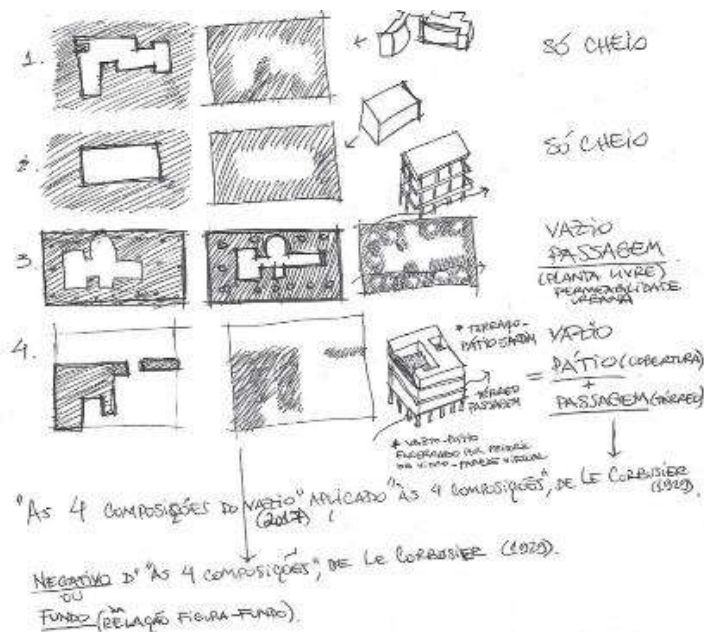 1. SÓ CHEIO
2. SÓ CHEIO
3. VAZIO
PASSAGEM
(PLANTA LIVRE)
PERMEABILIDADE
URBANA
4. * TERRAÇO-
PÁTIO JARDIM
TÉRREO
PASSAGEM
* VAZIO-PÁTIO
ENCERRADO POR
DE VIDRO-PAREDE VIRTUAL
= VAZIO
PÁTIO (COBERTURA)
+
PASSAGEM (TÉRREO)
"AS 4 COMPOSIÇÕES DO VAZIO" APLICADO "ÀS 4 COMPOSIÇÕES", DE LE CORBUSIER
(2017) (1929).
NEGATIVO D' "AS 4 COMPOSIÇÕES", DE LE CORBUSIER (1929).
OU
FUNDO (NA RELAÇÃO FIGURA-FUNDO).